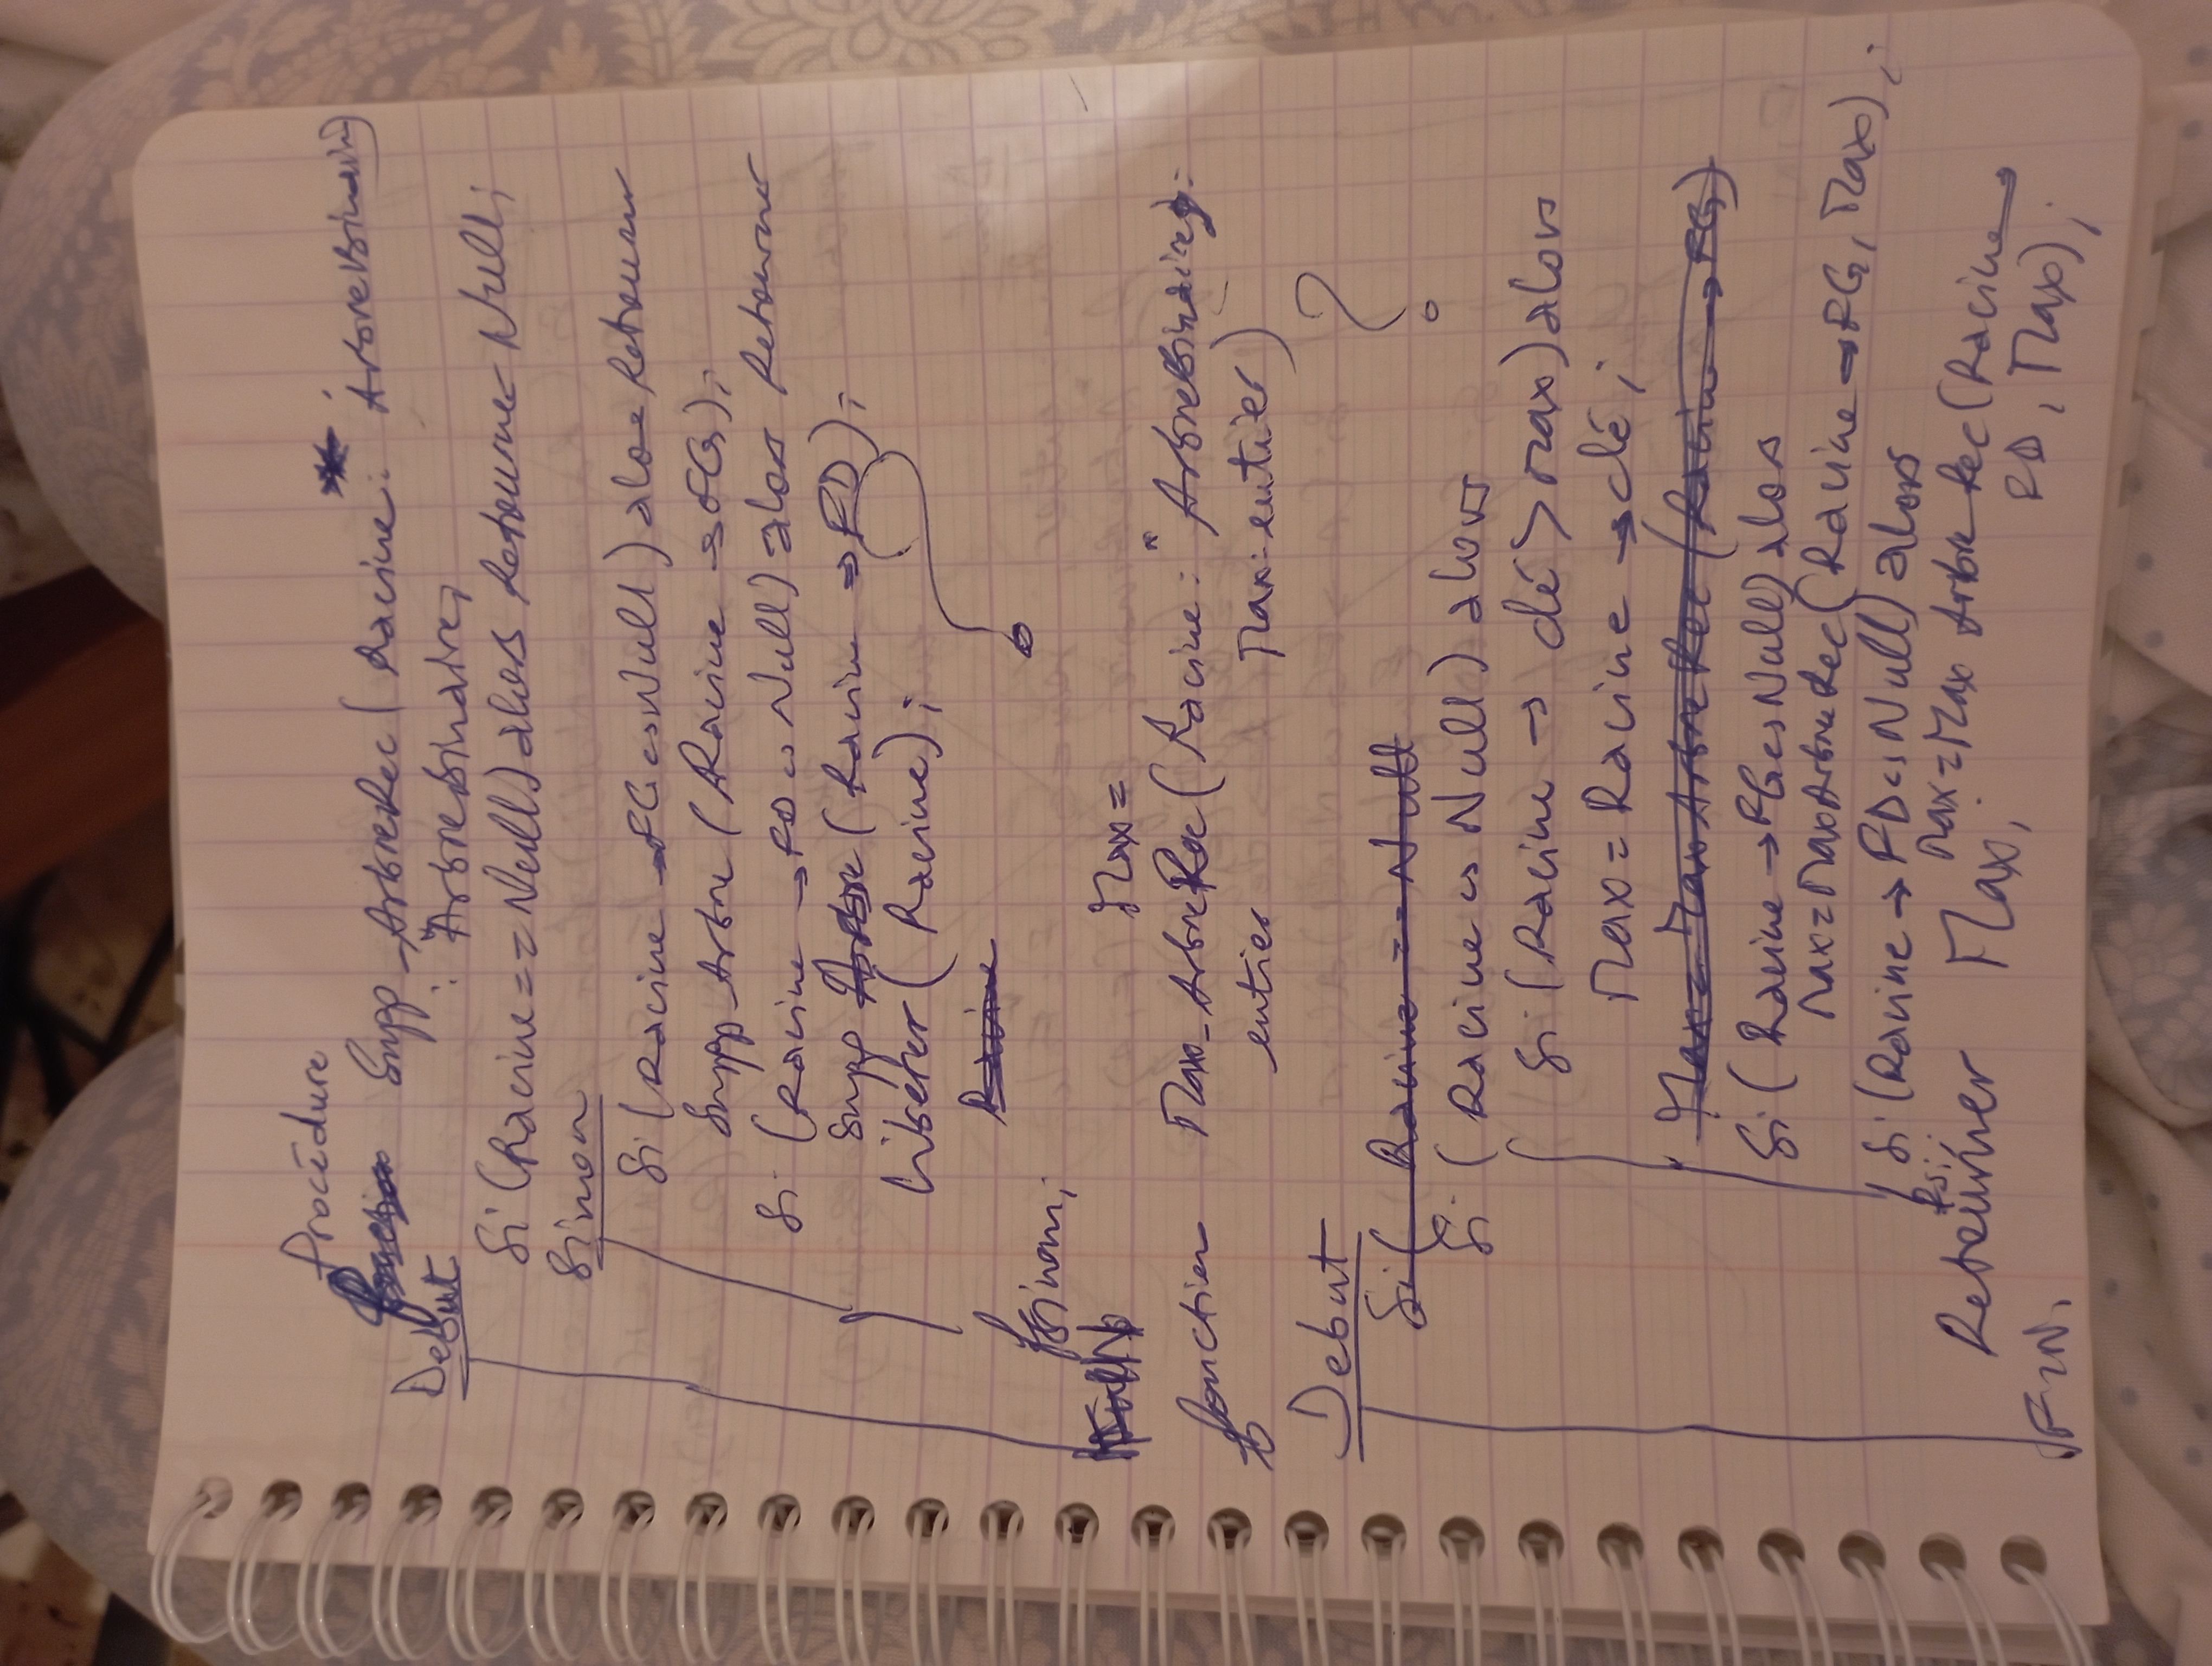 Procédure
Supp-ArbreRec (Racine: Arbrebinaire)
: ^Arbrebinaire;
Debut
Si (Racine == Null) alors Retourne Null;
Sinon
Si (Racine → FG <> Null) alors Retourne
Supp-Arbre (Racine → FG);
Si (Racine → FD <> Null) alors Retourne
Supp Arbre (Racine → FD);
Liberer (Racine);
Racine
Fsinon;
Max =
fonction Max-ArbreRec (Racine: ^Arbrebinaire;
Max: entier)
: entier
Debut
Si (Racine == Null
Si (Racine <> Null) alors
Si (Racine → clé > Max) alors
Max = Racine → clé;
Max = Max Arbre Rec (Racine → FG)
Si (Racine → FG <> Null) alors
Max = Max Arbre Rec (Racine → FG, Max);
Si (Racine → FD <> Null) alors
Max = Max Arbre Rec (Racine →
FD, Max);
Fsi;
Retourner Max;
FIN.